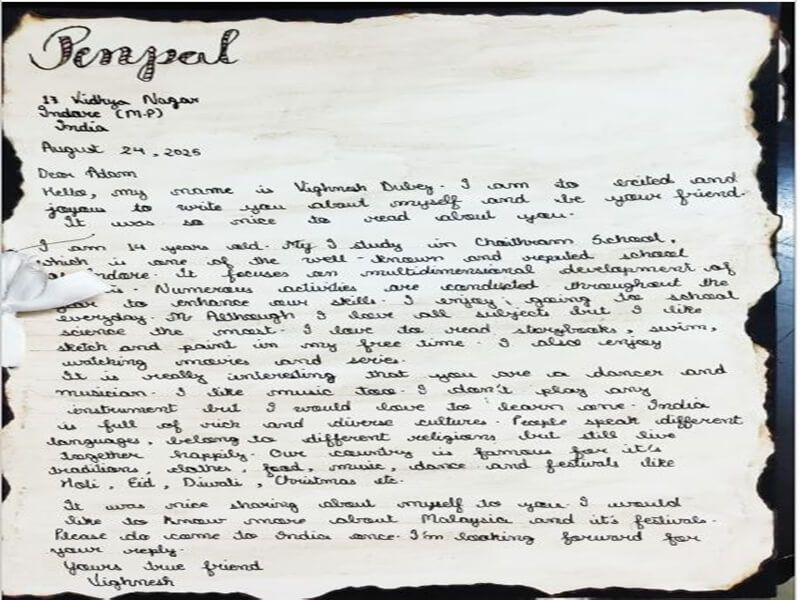 Penpal
17 Vidhya Nagar
Indore (M.P)
India
August 24, 2025
Dear Adam
Hello, my name is Vighnesh Dubey. I am to excited and
joyous to write you about myself and be your friend.
It was so nice to read about you.
I am 14 years old. My I study in Choithram School,
which is one of the well-known and reputed school
Indore. It focuses on multidimensional development of
Numerous activities are conducted throughout the
year to enhance our skills. I enjoy going to school
everyday. Although I love all subjects but I like
science the most. I love to read storybooks, swim,
sketch and paint in my free time. I also enjoy
watching movies and series.
It is really interesting that you are a dancer and
musician. I like music too. I don't play any
instrument but I would love to learn one. India
is full of rich and diverse cultures. People speak different
languages, belong to different religions but still live
together happily. Our country is famous for it's
traditions, clothes, food, music, dance and festivals like
Holi, Eid, Diwali, Christmas etc.
It was nice sharing about myself to you. I would
like to know more about Malaysia and it's festivals.
Please do come to India once. I'm looking forward for
your reply.
Yours true friend
Vighnesh